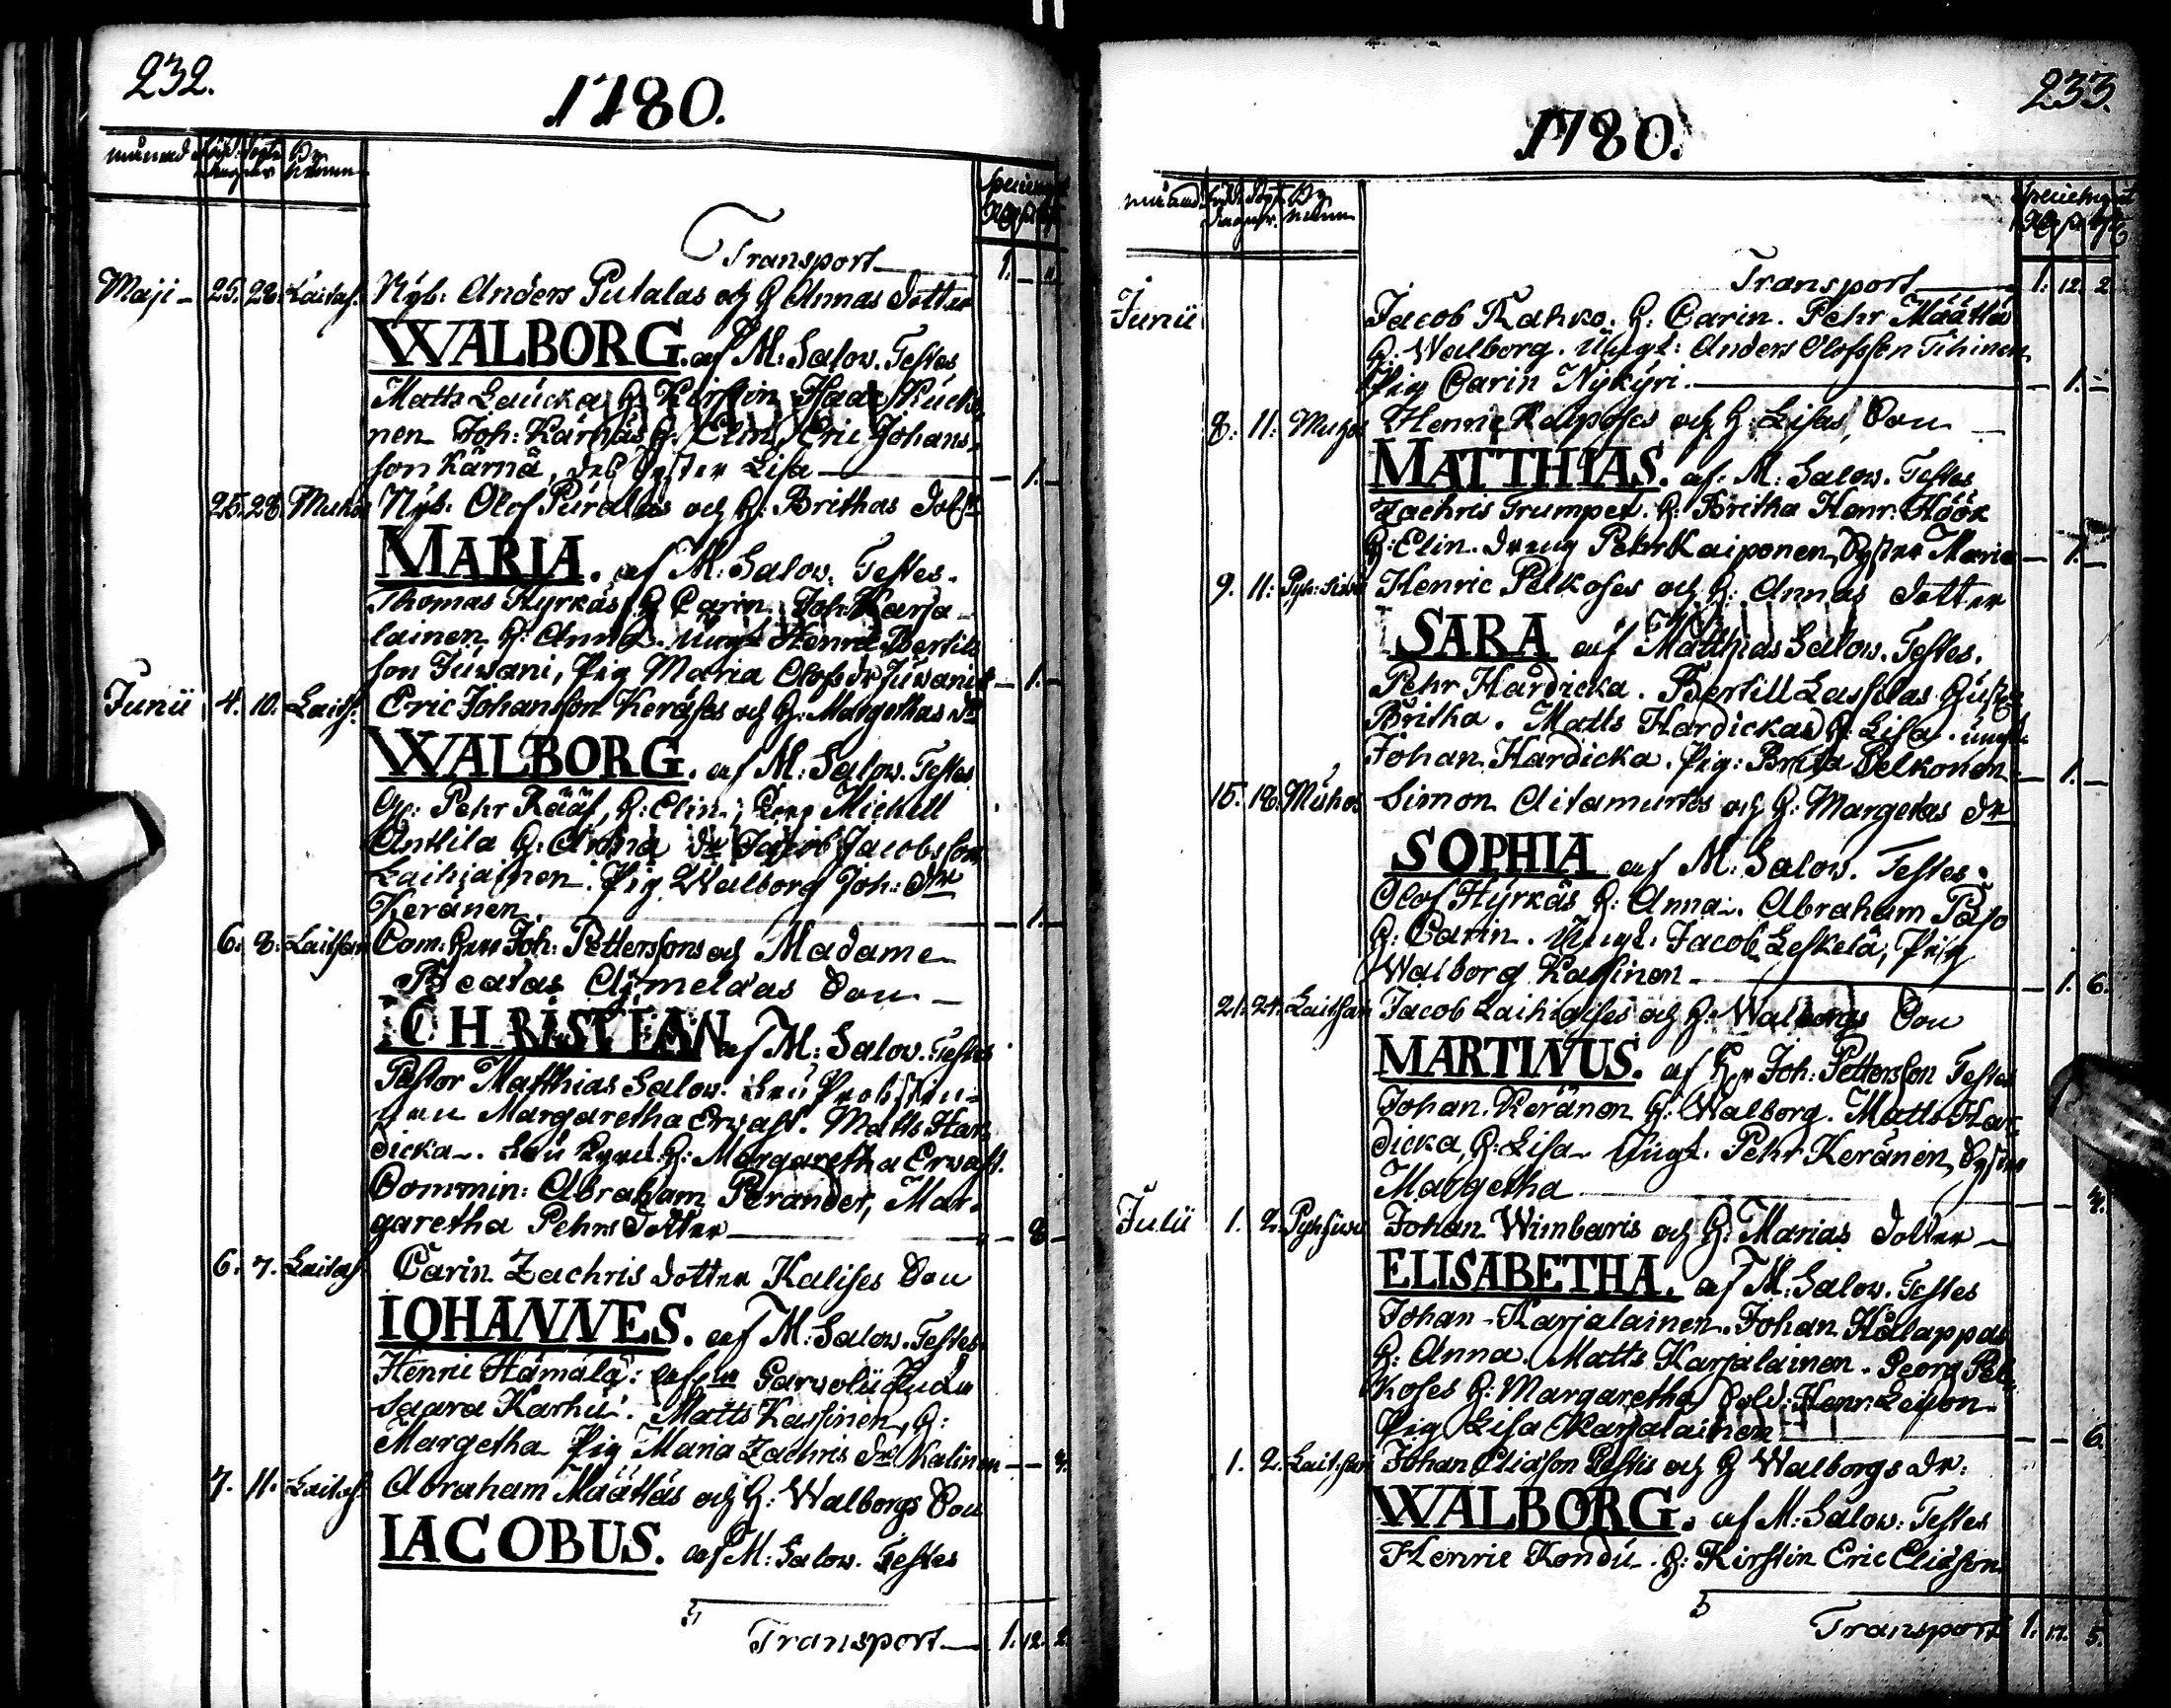 232.
1780.
månad
By
Transport 1. — "
Maji — 25. 28. Laitas. Nyb: Anders Putalas och H Annas dotter
WALBORG. af M: Salow. Testes
Matts Laucka H Kirstin Isaac Kucko
nen Joh: Kärnäs H. Elin, Eric Johans
son Kärnä, Syster Lisa — 1. —
25. 28 Muhos Nyb. Olof Puralas och H: Brithas dott
MARIA. af M: Salow. Testes.
Thomas Hyrkäs H Carin Joh: Karja
lainen, H: Anna. Ungk Henric Bertils
son Juwani, Pig Maria Olofs dr Juwani — 1. —
Junii 4. 10. Laits. Eric Johansson Keräses och H: Margethas dr
WALBORG. af M: Salow. Testes
Pehr Rääf, H: Elin; Michell
Anttila H. Anna Jacob Jacobsson
Laihiainen. Pig Walborg Joh: Dr
Keränen. — 1. —
6. 8. Laitsari Com: Joh: Petterssons och Madame
Beatas Aijmelæas Son —
CHRISTIAN af M: Salow. Testes
Pastor Matthias Salow. Fru Probstin
Margaretha Erwast. Matts Har
dicka. H: Margaretha Erwast.
Abraham Perander, Mar
garetha Pehrs dotter — 8 —
6. 7. Laitas. Carin Zachris dotter Kalises Son
IOHANNES. af M: Salow. Testes
Henric Hämälä:
Saara Karhu. Matts Kassinen, H:
Margetha Pig Maria Zachris dr Kalinen — — 4.
7. 11. Laitas. Abraham Määttäs och H: Walborgs Son
IACOBUS. af M: Salow. Testes
Transport 1. 12. 2.
233.
1780.
månad
By
Transport 1. 12. 2
Junii Jacob Rahko. H: Carin. Pehr Määttä
H: Walborg. Ungk: Anders Olofsson Tihinen
Pig Carin Nykyri. — 1. —
8. 11. Muhos Henric Kaiposes och H: Lisas, Son —
MATTHIAS. af. M: Salow. Testes
Zachris Trumpet. H: Britha Henr: Höök
H: Elin. Dreng Pehr Kaiponen, Syster Maria — 1. —
9. 11: Henric Pelkoses och H: Annas dotter
SARA af Matthias Salow. Testes.
Pehr Hardicka. Bertill Lassilas Hustru
Britha. Matts Hardickas H: Lisa.
Johan Hardicka. Pig: Brita Pelkonen — 1. —
15. 18. Muhos Simon Aitamurtos och H: Margetas dr
SOPHIA af M: Salow. Testes.
Olof Hyrkäs H: Anna. Abraham Päjo
H: Carin. Ungk: Jacob Leskelä, Pig
Walborg Kassinen — 1. 6.
21. 24. Laitsari Jacob Laihiaises och H: Walborgs Son
MARTINUS. af Hr Joh: Pettersson Testes
Johan Keränen H: Walborg. Matts Har
dicka, H: Lisa Ungk. Pehr Keränen, Syster
Margetha — — 4.
Julii 1. 2. Johan Wimbaris och H: Marias dotter —
ELISABETHA. af M: Salow. Testes
Johan Karjalainen. Johan Hälappas
H: Anna. Matts Karjalainen. Georg Pel
koses H: Margaretha Sold: Henr: Leijon
Pig Lisa Karjalainen — — 6.
1. 2. Laitsari Johan Eliasson och H Walborgs dr:
WALBORG. af M: Salow: Testes
Henric Kondu. H: Kirstin Eric Eliasson
Transport 1. 17. 5.